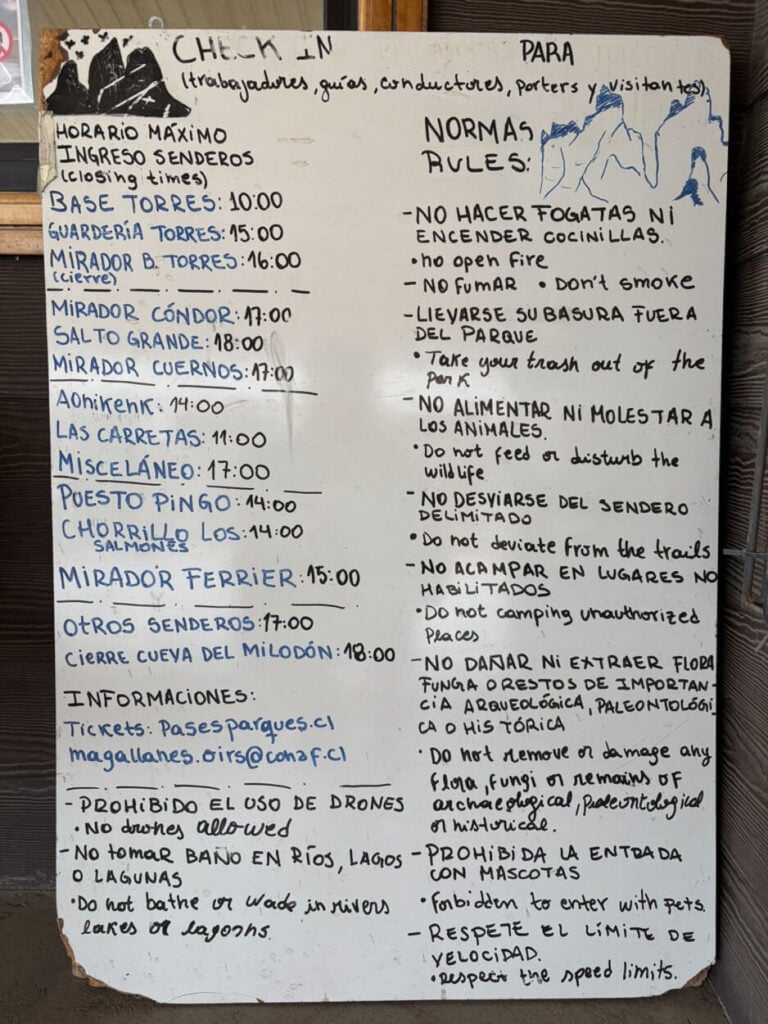 CHECK IN PARA
(trabajadores, guías, conductores, porters y visitantes)
HORARIO MÁXIMO
INGRESO SENDEROS
(closing times)
BASE TORRES: 10:00
GUARDERÍA TORRES: 15:00
MIRADOR B. TORRES: 16:00
(cierre)
MIRADOR CÓNDOR: 17:00
SALTO GRANDE: 18:00
MIRADOR CUERNOS: 17:00
AONIKENK: 14:00
LAS CARRETAS: 11:00
MISCELÁNEO: 17:00
PUESTO PINGO: 14:00
CHORRILLO LOS: 14:00
SALMONES
MIRADOR FERRIER: 15:00
OTROS SENDEROS: 17:00
CIERRE CUEVA DEL MILODÓN: 18:00
INFORMACIONES:
Tickets: Pasesparques.cl
magallanes.oirs@conaf.cl
- PROHIBIDO EL USO DE DRONES
• No drones allowed
- NO tomar BAÑO EN RÍOS, LAGOS
O LAGUNAS
• Do not bathe or wade in rivers
lakes or lagoons.
NORMAS
RULES:
- NO HACER FOGATAS NI
ENCENDER COCINILLAS.
• no open fire
- NO FUMAR • Don't smoke
- LLEVARSE SU BASURA FUERA
DEL PARQUE
• Take your trash out of the
park
- NO ALIMENTAR NI MOLESTAR A
LOS ANIMALES.
• Do not feed or disturb the
wildlife
- NO DESVIARSE DEL SENDERO
DELIMITADO
• Do not deviate from the trails
- NO ACAMPAR EN LUGARES NO
HABILITADOS
• Do not camping unauthorized
Places
- NO DAÑAR NI EXTRAER FLORA
FUNGA O RESTOS DE IMPORTAN-
CIA ARQUEOLÓGICA, PALEONTOLÓGI
CA O HISTÓRICA
• Do not remove or damage any
flora, fungi or remains of
archaeological, paleontological
or historical.
- PROHIBIDA LA ENTRADA
CON MASCOTAS
• Forbidden to enter with pets.
- RESPETE EL LÍMITE DE
VELOCIDAD.
• respect the speed limits.